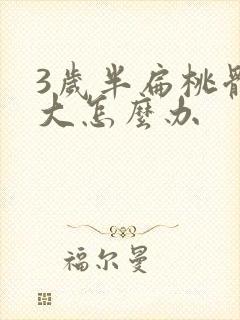 3歲半扁桃體
大怎麼办
福尔曼